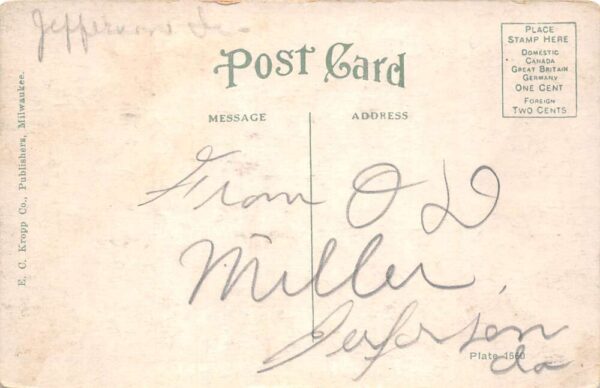 Jefferson Ia.
Post Card
PLACE
STAMP HERE
DOMESTIC
CANADA
GREAT BRITAIN
GERMANY
ONE CENT
FOREIGN
TWO CENTS
MESSAGE
ADDRESS
E. C. Kropp Co., Publishers, Milwaukee.
From O D
Miller,
Jefferson
Ia
Plate 1560